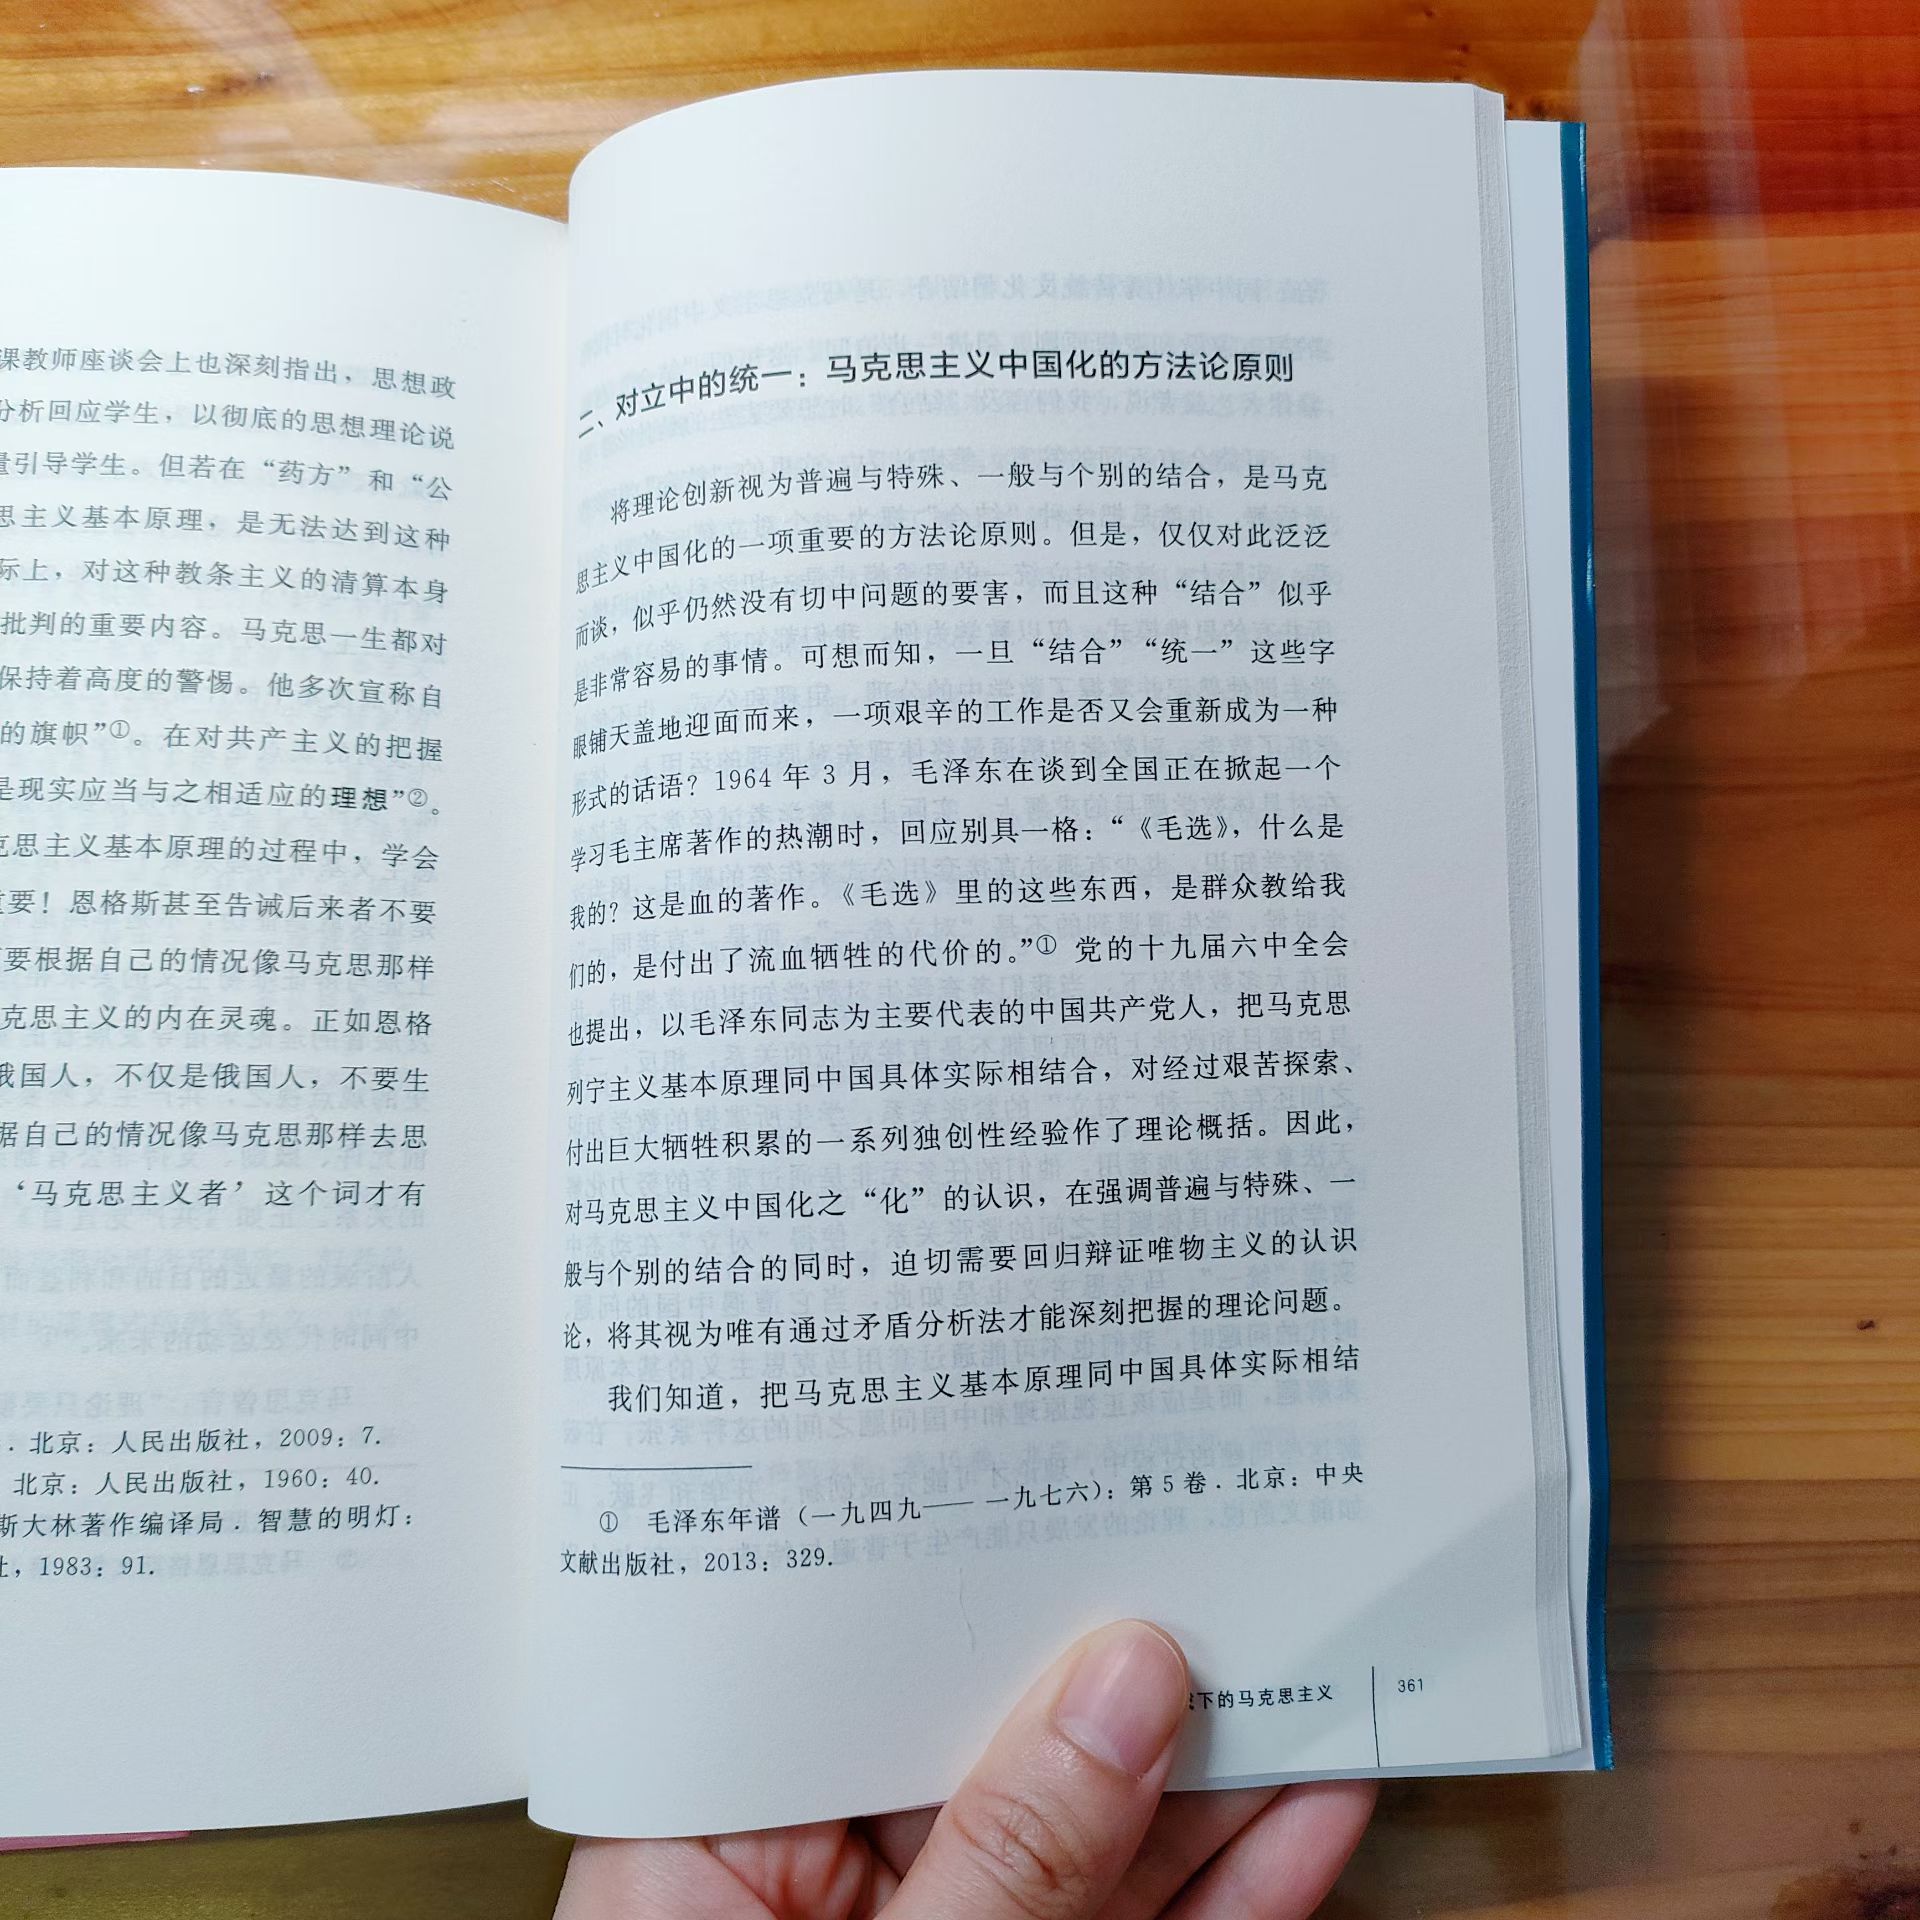 课教师座谈会上也深刻指出，思想政
分析回应学生，以彻底的思想理论说
量引导学生。但若在“药方”和“公
思主义基本原理，是无法达到这种
际上，对这种教条主义的清算本身
批判的重要内容。马克思一生都对
保持着高度的警惕。他多次宣称自
的旗帜”①。在对共产主义的把握
是现实应当与之相适应的理想”②。
克思主义基本原理的过程中，学会
重要！恩格斯甚至告诫后来者不要
要根据自己的情况像马克思那样
克思主义的内在灵魂。正如恩格
俄国人，不仅是俄国人，不要生
据自己的情况像马克思那样去思
‘马克思主义者’这个词才有
. 北京：人民出版社，2009：7.
北京：人民出版社，1960：40.
斯大林著作编译局. 智慧的明灯：
社，1983：91.
二、对立中的统一：马克思主义中国化的方法论原则
将理论创新视为普遍与特殊、一般与个别的结合，是马克
思主义中国化的一项重要的方法论原则。但是，仅仅对此泛泛
而谈，似乎仍然没有切中问题的要害，而且这种“结合”似乎
是非常容易的事情。可想而知，一旦“结合”“统一”这些字
眼铺天盖地迎面而来，一项艰辛的工作是否又会重新成为一种
形式的话语？1964 年 3 月，毛泽东在谈到全国正在掀起一个
学习毛主席著作的热潮时，回应别具一格：“《毛选》，什么是
我的？这是血的著作。《毛选》里的这些东西，是群众教给我
们的，是付出了流血牺牲的代价的。”① 党的十九届六中全会
也提出，以毛泽东同志为主要代表的中国共产党人，把马克思
列宁主义基本原理同中国具体实际相结合，对经过艰苦探索、
付出巨大牺牲积累的一系列独创性经验作了理论概括。因此，
对马克思主义中国化之“化”的认识，在强调普遍与特殊、一
般与个别的结合的同时，迫切需要回归辩证唯物主义的认识
论，将其视为唯有通过矛盾分析法才能深刻把握的理论问题。
我们知道，把马克思主义基本原理同中国具体实际相结
① 毛泽东年谱（一九四九——一九七六）：第 5 卷. 北京：中央
文献出版社，2013：329.
下的马克思主义
361